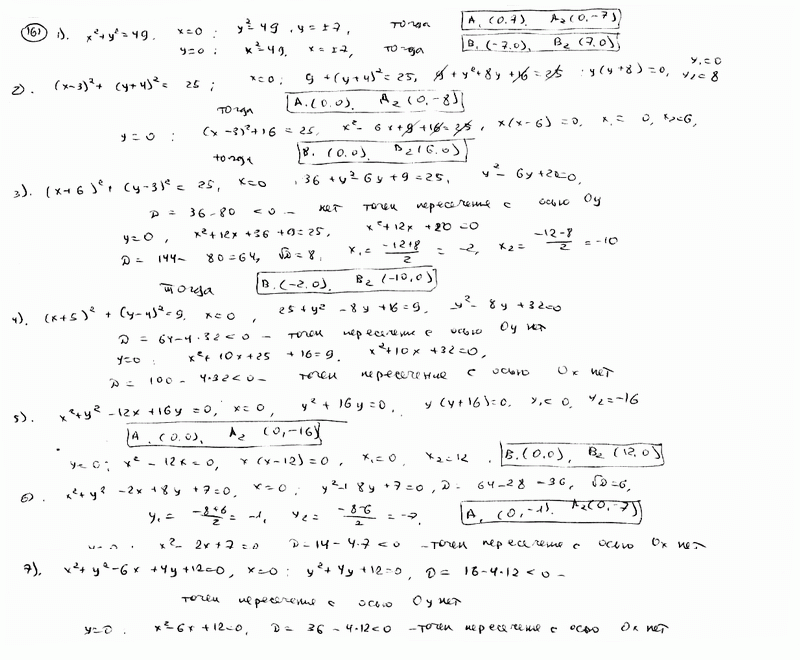 161 1). x²+y²=49. x=0: y²=49, y=±7, тогда A₁(0,7). A₂(0,-7)
y=0: x²=49. x=±7, тогда B₁(-7,0), B₂(7,0)
2). (x-3)²+(y+4)²=25; x=0; 9+(y+4)²=25, 9+y²+8y+16=25 : y(y+8)=0, y₁=0 y₂=8
тогда A₁(0,0). A₂(0,-8)
y=0: (x-3)²+16=25, x²-6x+9+16=25, x(x-6)=0, x₁=0, x₂=6,
тогда B₁(0,0). B₂(6,0)
3). (x+6)²+(y-3)²=25, x=0, 36+y²-6y+9=25, y²-6y+20=0,
D=36-80<0 - нет точек пересечение с осью Oy
y=0, x²+12x+36+9=25, x²+12x+20=0
D=144-80=64, √D=8, x₁=(-12+8)/2=-2, x₂=(-12-8)/2=-10
Тогда B₁(-2,0). B₂(-10,0)
4). (x+5)²+(y-4)²=9. x=0, 25+y²-8y+16=9, y²-8y+32=0
D=64-4·32<0 - точек пересечение с осью Oy нет
y=0: x²+10x+25+16=9. x²+10x+32=0,
D=100-4·32<0 - точек пересечение с осью Ox нет
5). x²+y²-12x+16y=0, x=0, y²+16y=0, y(y+16)=0. y₁=0, y₂=-16
A₁(0,0). A₂(0,-16)
y=0; x²-12x=0, x(x-12)=0, x₁=0, x₂=12. B₁(0,0), B₂(12,0)
6). x²+y²-2x+8y+7=0, x=0; y²+8y+7=0, D=64-28-36, √D=6,
y₁=(-8+6)/2=-1, y₂=(-8-6)/2=-7, A₁(0,-1). A₂(0,-7)
y=0. x²-2x+7=0 D=14-4·7<0 - точек пересечение с осью Ox нет
7). x²+y²-6x+4y+12=0, x=0: y²+4y+12=0, D=16-4·12<0 -
точек пересечение с осью Oy нет
y=0. x²-6x+12=0, D=36-4·12<0 - точек пересечение с осью Ox нет